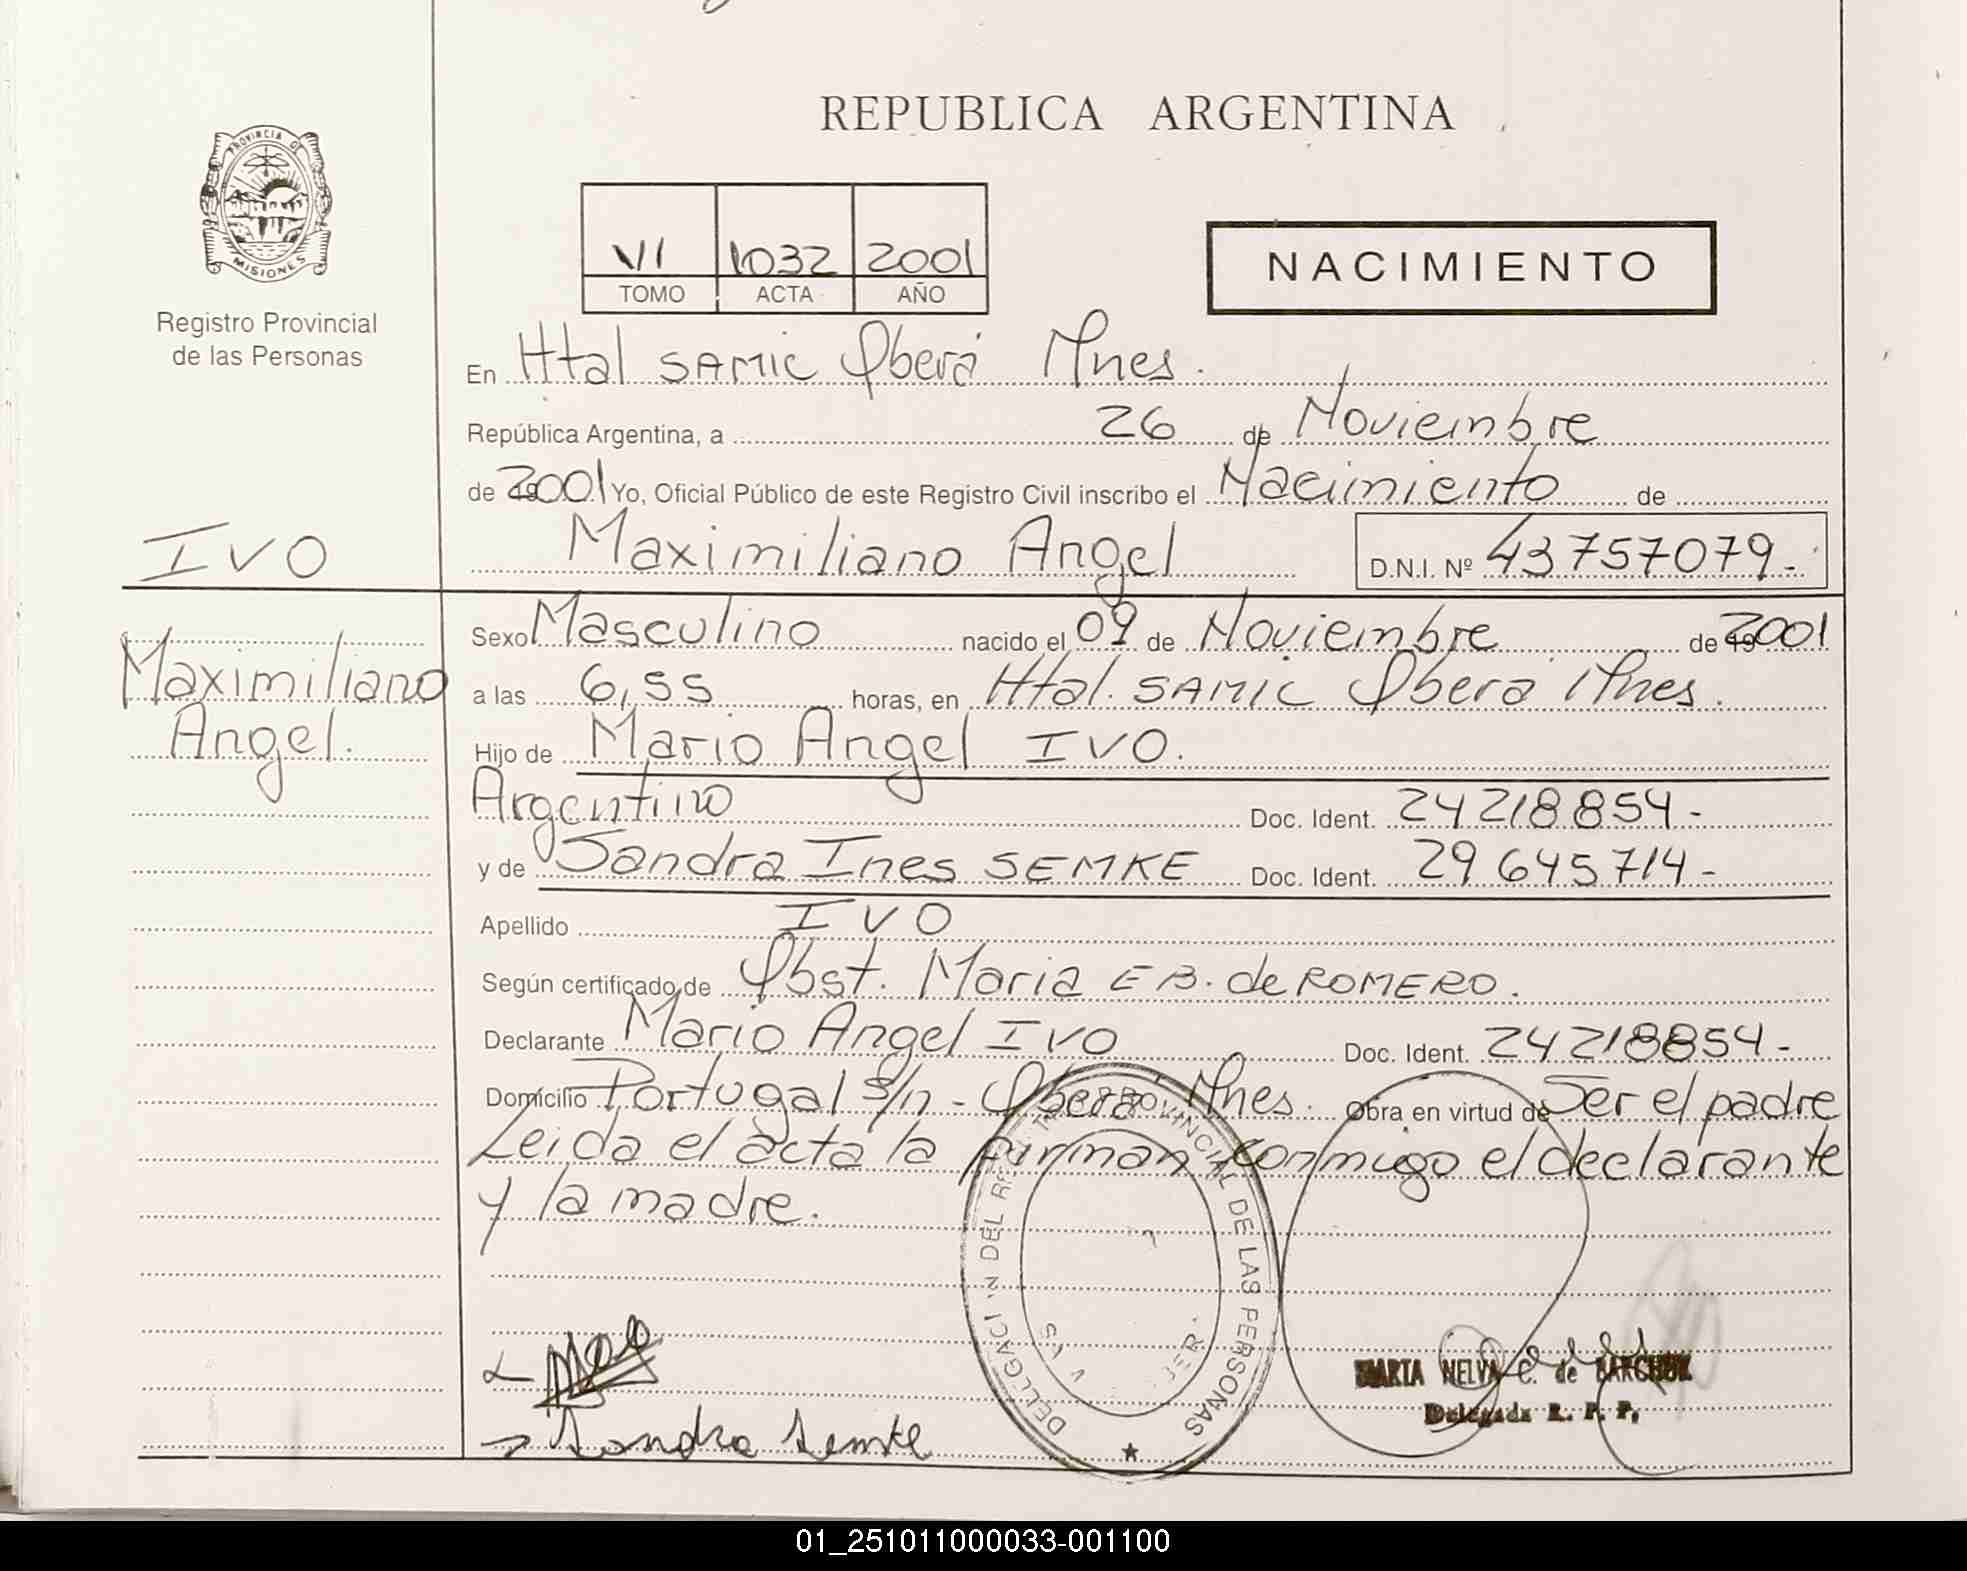 REPUBLICA ARGENTINA
PROVINCIA DE
MISIONES
Registro Provincial
de las Personas
VI 1032 2001
TOMO ACTA AÑO
NACIMIENTO
En Htal SAMIC Oberá Mnes.
República Argentina, a 26 de Noviembre
de 2001 Yo, Oficial Público de este Registro Civil inscribo el Nacimiento de
IVO
Maximiliano Angel D.N.I. Nº 43757079-
Maximiliano
Angel.
Sexo Masculino nacido el 09 de Noviembre de 2001
a las 6,55 horas, en Htal. SAMIC Oberá Mnes.
Hijo de Mario Angel IVO.
Argentino Doc. Ident. 24218854-
y de Sandra Ines SEMKE Doc. Ident. 29645714-
Apellido IVO
Según certificado de Obst. Maria E B. de ROMERO.
Declarante Mario Angel IVO Doc. Ident. 24218854-
Domicilio Portugal s/n - Oberá Mnes. Obra en virtud de Ser el padre
Leida el acta la firman conmigo el declarante
y la madre.
DEL REGISTRO PROVINCIAL DE LAS PERSONAS
Sandra Semke
MARTA NELVA C. de
Delegada R. P. P.
01_251011000033-001100